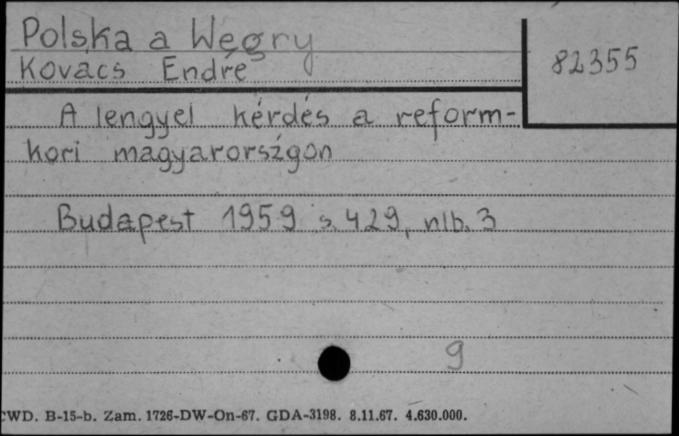 Polska a Węgry
82355
Kovács Endre
A lengyel kérdés a reform-
kori magyarorszígon
Budapest 1959 s. 429, nlb. 3
9
CWD. B-15-b. Zam. 1726-DW-On-67. GDA-3198. 8.11.67. 4.630.000.